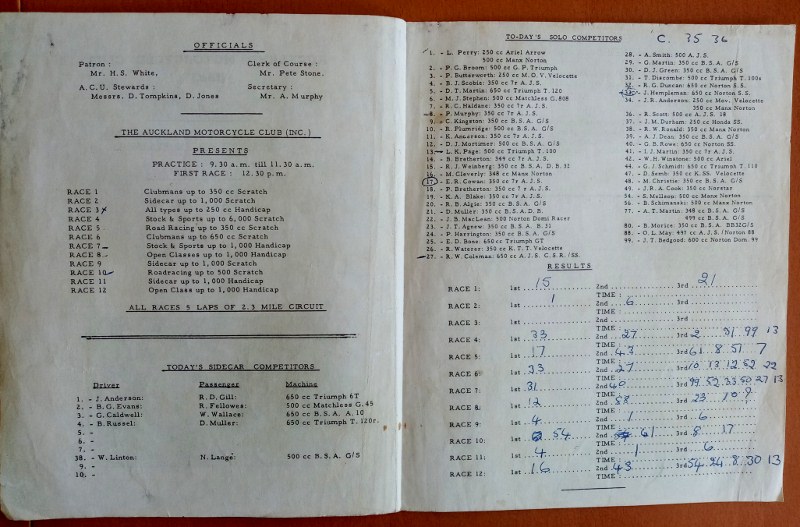 OFFICIALS
Patron :
Mr. H.S. White,
Clerk of Course :
Mr. Pete Stone.
A.C.U. Stewards :
Messrs. D. Tompkins, D. Jones
Secretary :
Mr. A. Murphy
THE AUCKLAND MOTORCYCLE CLUB (INC.)
PRESENTS
PRACTICE : 9.30 a.m. till 11.30 a.m.
FIRST RACE : 12.30 p.m.
RACE 1 Clubmans up to 350 cc Scratch
RACE 2 Sidecar up to 1,000 Scratch
RACE 3 All types up to 250 cc Handicap
RACE 4 Stock & Sports up to 6,000 Scratch
RACE 5 Road Racing up to 350 cc Scratch
RACE 6 Clubmans up to 650 cc Scratch
RACE 7 Stock & Sports up to 1,000 Handicap
RACE 8 Open Classes up to 1,000 Handicap
RACE 9 Sidecar up to 1,000 Scratch
RACE 10 Roadracing up to 500 Scratch
RACE 11 Sidecar up to 1,000 Handicap
RACE 12 Open Class up to 1,000 Handicap
ALL RACES 5 LAPS OF 2.3 MILE CIRCUIT
TODAY'S SIDECAR COMPETITORS
Driver Passenger Machine
1. - J. Anderson: R.D. Gill: 650 cc Triumph 6T
2. - B.G. Evans: R. Fellowes: 500 cc Matchless G.45
3. - G. Caldwell: W. Wallace: 650 cc B.S.A. A.10
4. - B. Russel: D. Muller: 650 cc Triumph T.120r.
5. -
6. -
7. -
38. - W. Linton: N. Lange: 500 cc B.S.A. G/S
9. -
10. -
TO-DAY'S SOLO COMPETITORS C. 35 36
1. - L. Perry: 250 cc Ariel Arrow
500 cc Manx Norton
2. - P.G. Broom: 500 cc G.P. Triumph
3. - P. Butterworth: 250 cc M.O.V. Velocette
4. - B.J. Scobie: 350 cc 7r A.J.S.
5. - D.T. Martin: 650 cc Triumph T.120
6. - M.J. Stephen: 500 cc Matchless G.80S
7. - R.C. Haldane: 350 cc 7r A.J.S.
8. - P. Murphy: 350 cc 7r A.J.S.
9. - C. Kingston: 350 cc B.S.A. G/S
10. - R. Plumridge: 500 cc Manx Norton
11. - K. Anderson: 350 cc 7r A.J.S.
12. - D.J. Mortimer: 500 cc B.S.A. G/S
13. - L.K. Page: 500 cc Triumph T.100
14. - B. Bretherton: 349 cc 7r A.J.S.
15. - R.J. Weinberg: 350 cc B.S.A. D.B. 32
16. - M. Cleverly: 348 cc Manx Norton
17. - E.R. Cowan: 350 cc 7r A.J.S.
18. - P. Bretherton: 350 cc 7 r A.J.S.
19. - K.A. Blake: 350 cc 7r A.J.S.
20. - R.B. Algie: 500 cc B.S.A. G/S
21. - D. Muller: 350 cc B.S.A D.B.
22. - J.B. MacLeod: 500 Norton Domi Racer
23. - J.T. Agnew: 350 cc B.S.A. B.31
24. - P. Herrington: 350 cc B.S.A. G/S
25. - E.D. Bone: 650 cc Triumph GT
26. - R. Waterer: 350 cc K.T.T. Velocette
27. - R.W. Coleman: 650 cc A.J.S. C.S.R./SS.
28. - A. Smith: 500 A.J.S.
29. - G. Martin: 350 cc B.S.A. G/S
30. - D.J. Green: 350 cc B.S.A. G/S
31. - T. Discombe: 500 cc Triumph T.100s
32. - R.G. Duncan: 650 cc Norton S.S.
33. - J. Hempleman: 650 cc Norton S.S.
34. - J.R. Anderson: 250 cc Mov. Velocette
350 cc Manx Norton
36. - R. Scott: 500 cc A.J.S. 18
37. - J.M. Durham: 250 cc Honda SS
38. - R.W. Ronald: 350 cc Manx Norton
39. - A.J. Dean: 350 cc B.S.A. G/S
40. - G.B. Rowe: 650 cc Norton SS.
41. - I.J. Martin: 350 cc 7r A.J.S.
42. - W.H. Winstone: 500 cc Ariel
44. - G.J. Schmidt: 650 cc Triumph T.110
47. - D. Semb: 350 cc K.SS. Velocette
48. - M. Christie: 350 cc B.S.A. G/S
54. - E. McIleon: 500 cc Manx Norton
56. - B. Schimanski: 500 cc Manx Norton
77. - A.T. Martin: 348 cc B.S.A. G/S
499 cc B.S.A. G/S
80. - B. Morice: 350 cc B.S.A. BB32G/S
88. - O.L. May: 497 cc A.J.S./Norton 88
99. - J.T. Bedgood: 600 cc Norton Dom. 99
RESULTS
RACE 1: 1st 15 2nd 3rd 21
TIME :
RACE 2: 1st 1 2nd 6 3rd
TIME :
RACE 3: 1st 2nd 3rd
TIME :
RACE 4: 1st 33 2nd 27 3rd 2 31 99 13
TIME :
RACE 5: 1st 17 2nd 43 3rd 61 8 51 7
TIME :
RACE 6: 1st 33 2nd 27 3rd 10 13 12 52 22
TIME :
RACE 7: 1st 31 2nd 40 3rd 99 52 33 50 27 13
TIME :
RACE 8: 1st 12 2nd 58 3rd 23 10 9
TIME :
RACE 9: 1st 4 2nd 1 3rd 6
TIME :
RACE 10: 1st 54 2nd 61 3rd 8 17
TIME :
RACE 11: 1st 4 2nd 1 3rd 6
TIME :
RACE 12: 1st 16 2nd 43 3rd 54 34 8 30 13
TIME :